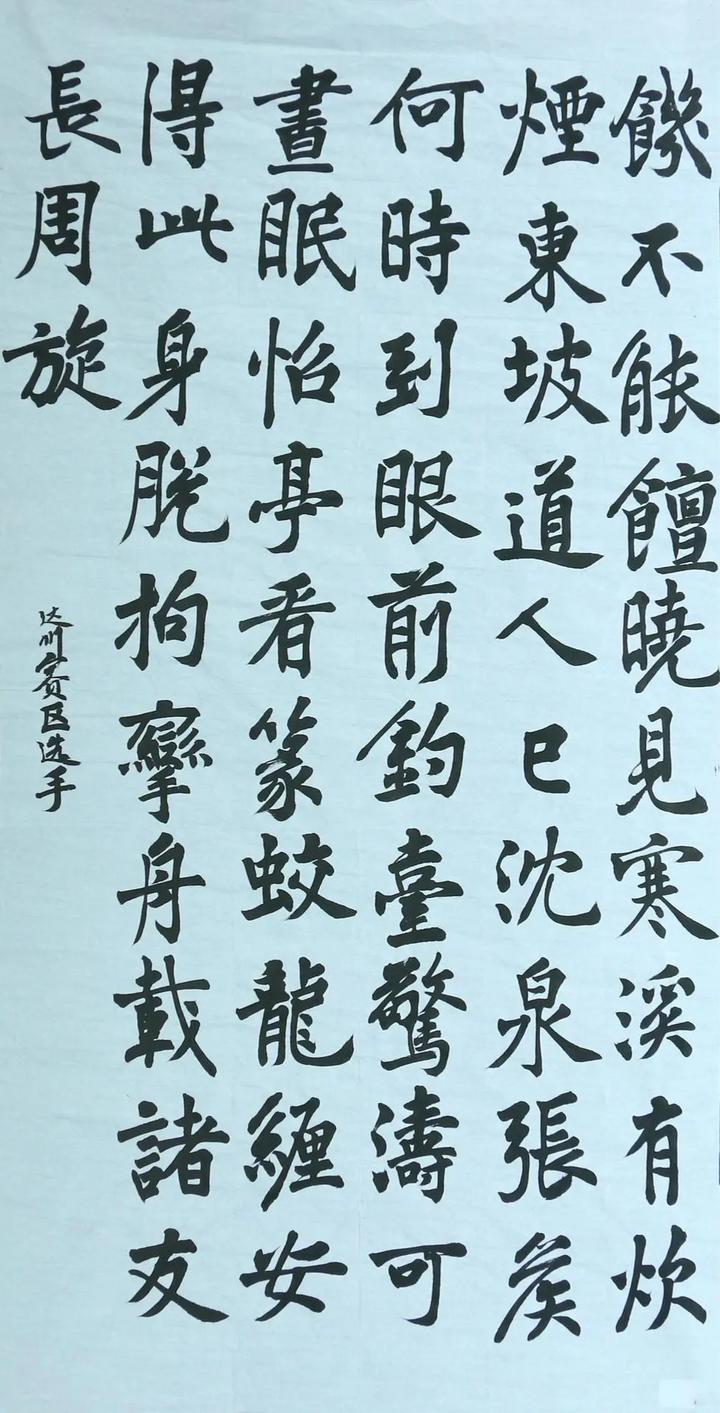 饑不能饘曉見寒溪有炊
煙東坡道人已沈泉張矦
何時到眼前釣臺驚濤可
晝眠怡亭看篆蛟龍纏安
得此身脫拘攣舟載諸友
長周旋
达川赛区选手